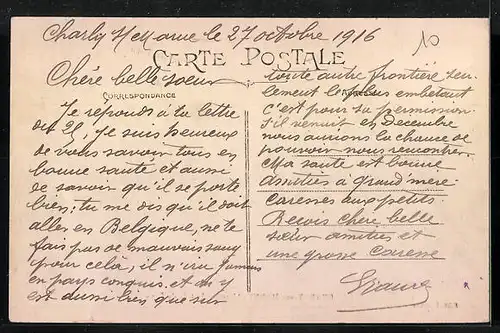 Charly s/ Marne le 27 octobre 1916
10
CARTE POSTALE
Chère belle sœur
CORRESPONDANCE
Je réponds à ta lettre
du 25. Je suis heureux
de vous savoir tous en
bonne santé et aussi
de savoir qu'il se porte
bien; tu me dis qu'il doit
aller en Belgique, ne te
fais pas de mauvais sang
pour celà, il n'ira jamais
en pays conquis et on y
est aussi bien que sur
toute autre frontière seu-
lement le plus embetant
C'est pour sa permission.
S'il venait en Decembre
nous aurions la chance de
pouvoir nous rencontrer.
Ma santé est bonne
amitiés à grand'mère
caresses aux petits
Recois chère belle
sœur amitiés et
une grosse caresse